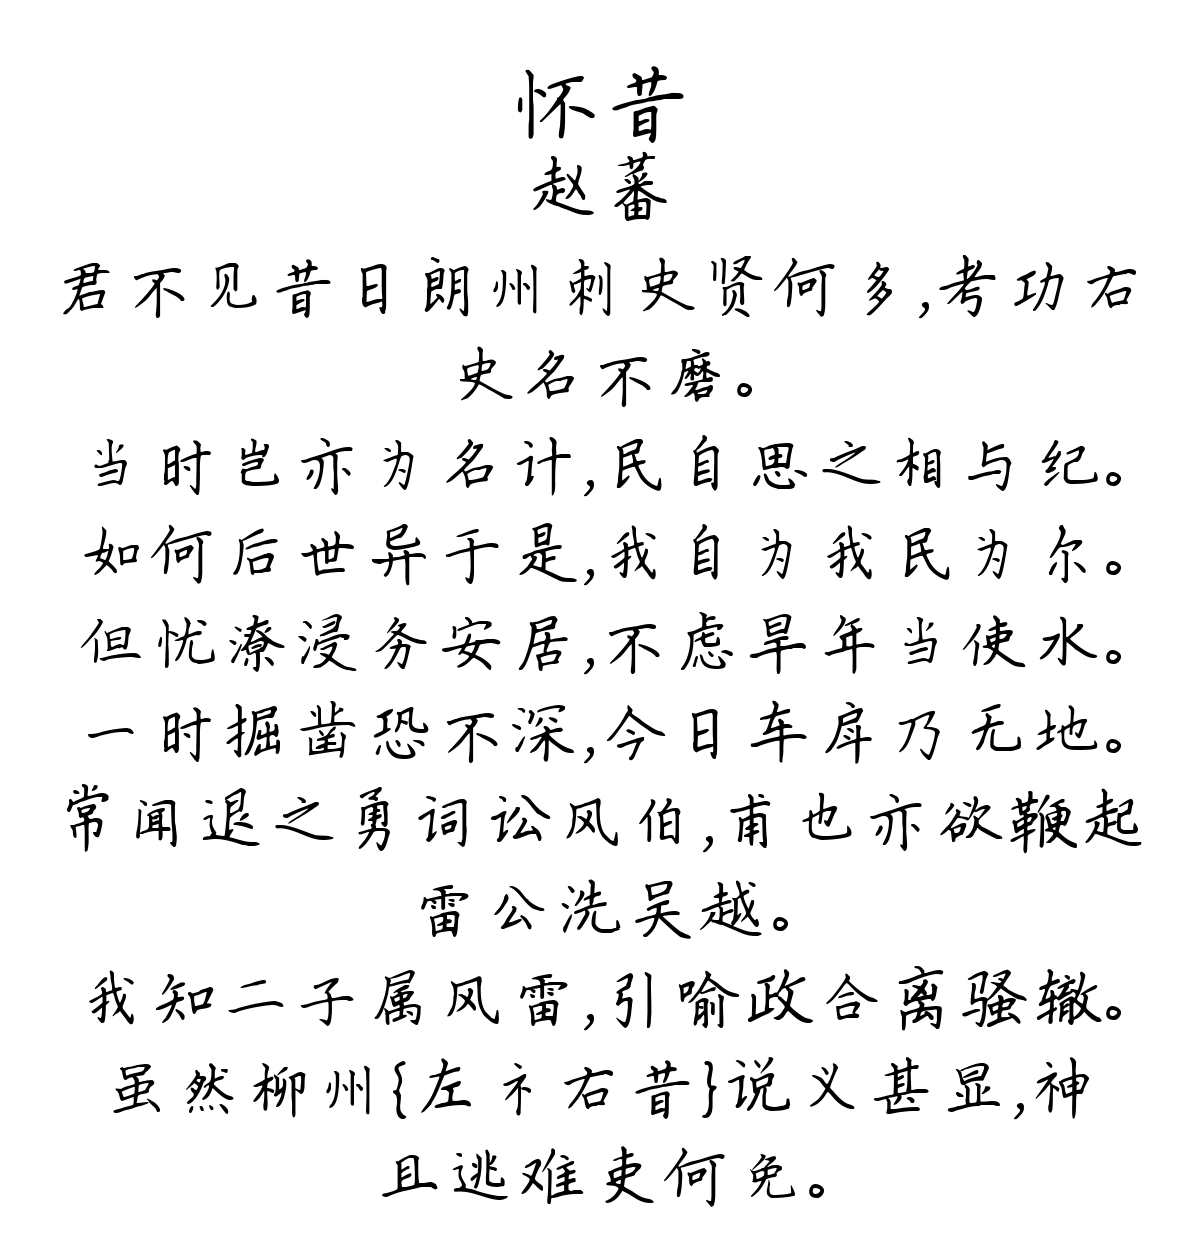 怀昔
赵蕃
君不见昔日朗州刺史贤何多,考功右
史名不磨。
当时岂亦为名计,民自思之相与纪。
如何后世异于是,我自为我民为尔。
但忧潦浸务安居,不虑旱年当使水。
一时掘凿恐不深,今日车戽乃无地。
常闻退之勇词讼风伯,甫也亦欲鞭起
雷公洗吴越。
我知二子属风雷,引喻政合离骚辙。
虽然柳州{左礻右昔}说义甚显,神
且逃难吏何免。